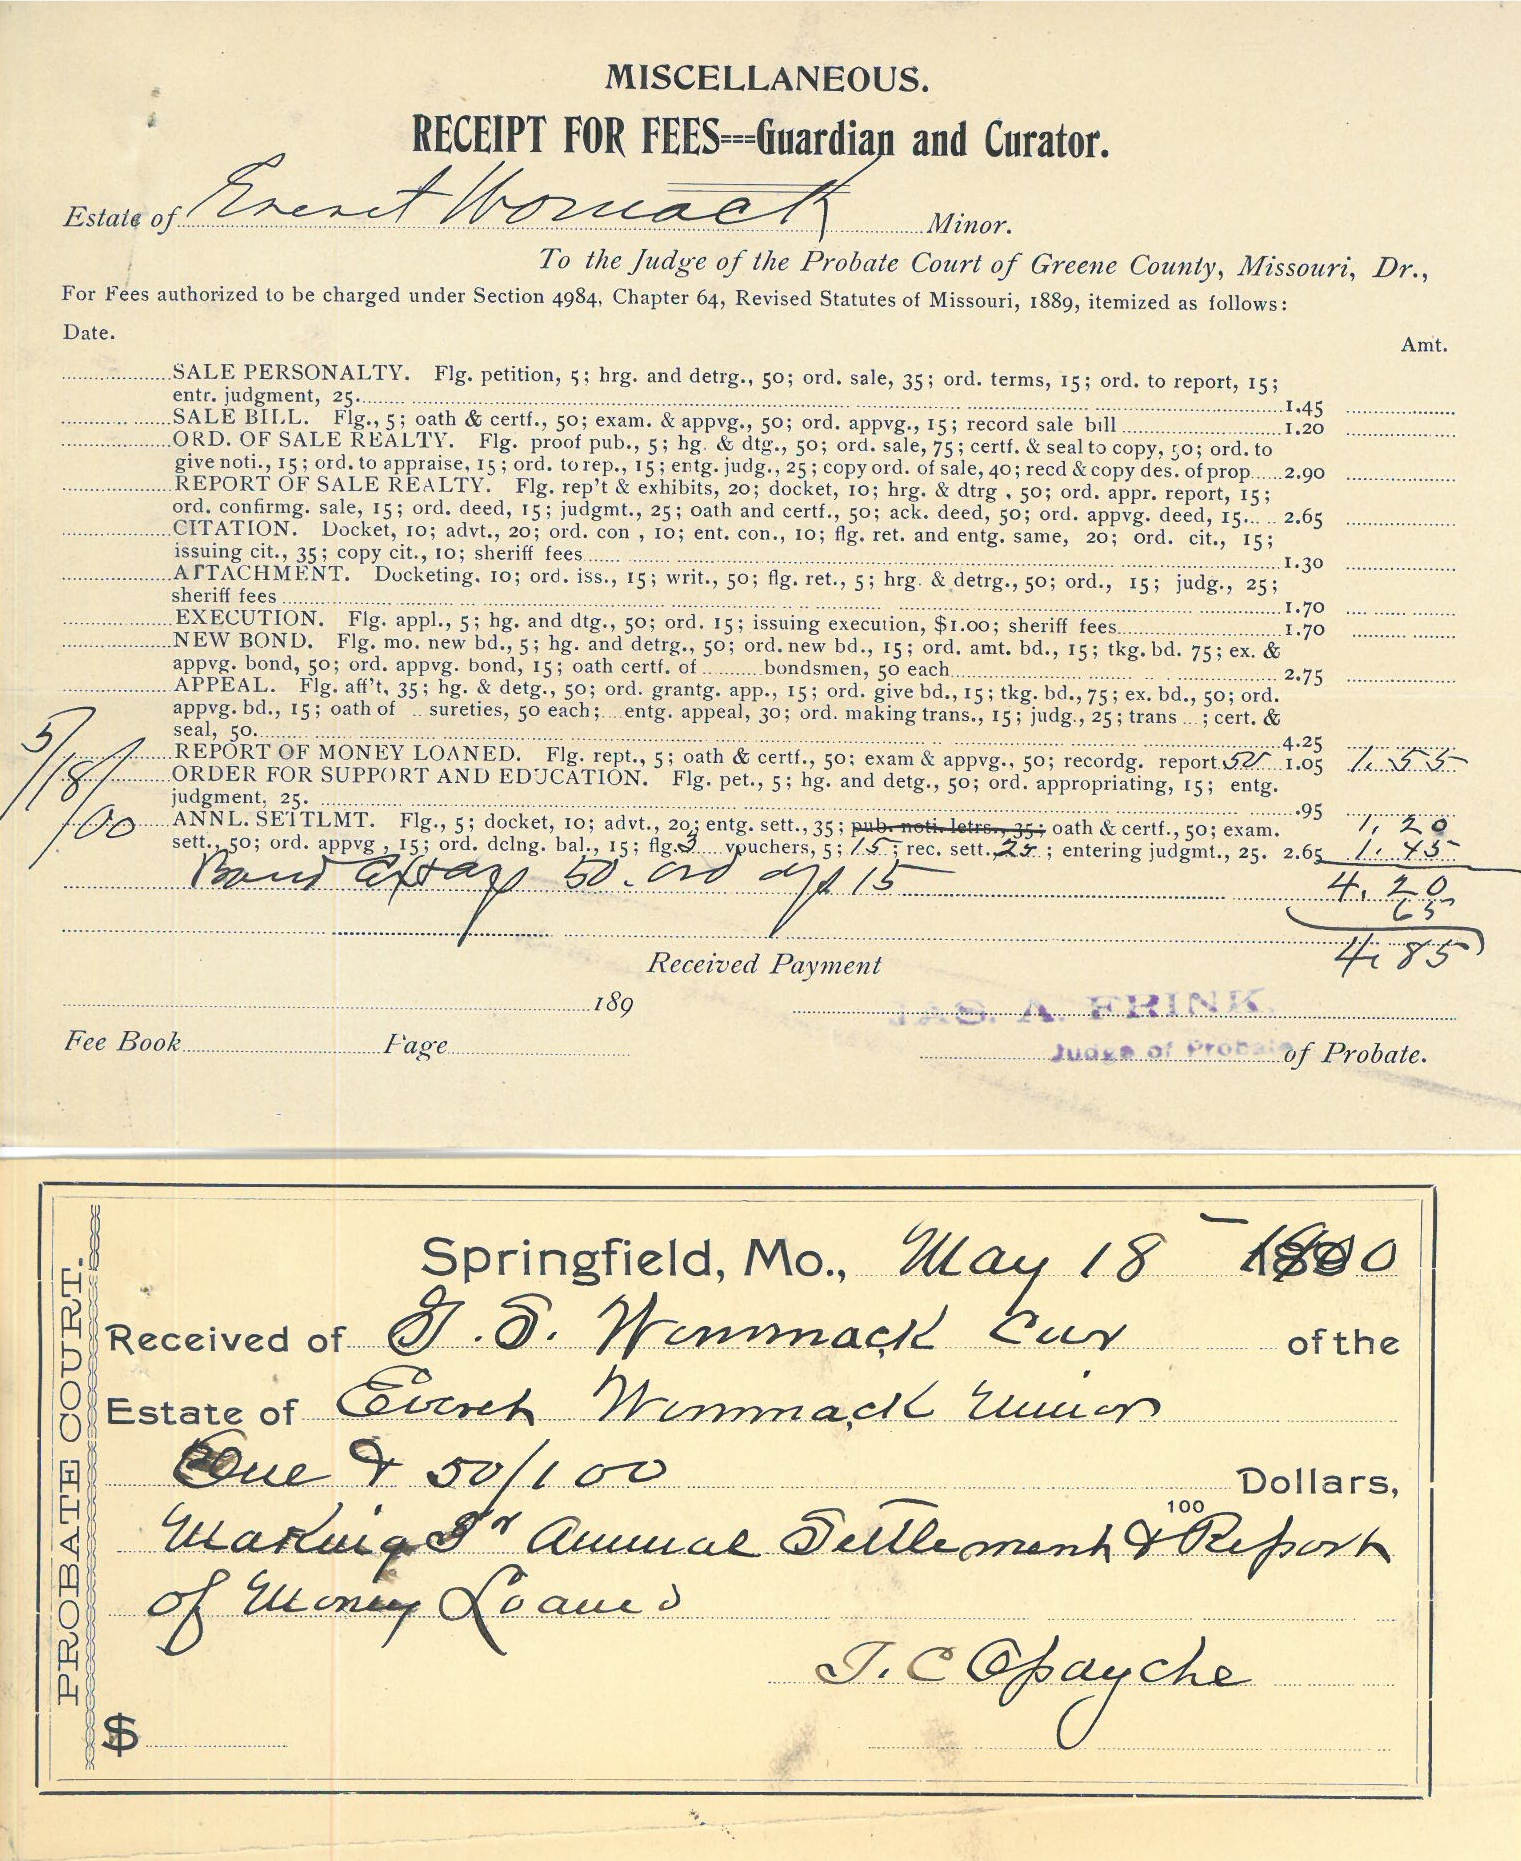 MISCELLANEOUS.
RECEIPT FOR FEES===Guardian and Curator.
Estate of Everet Womack Minor.
To the Judge of the Probate Court of Greene County, Missouri, Dr.,
For Fees authorized to be charged under Section 4984, Chapter 64, Revised Statutes of Missouri, 1889, itemized as follows:
Date.
Amt.
SALE PERSONALTY. Flg. petition, 5; hrg. and detrg., 50; ord. sale, 35; ord. terms, 15; ord. to report, 15;
entr. judgment, 25. 1.45
SALE BILL. Flg., 5; oath & certf., 50; exam. & appvg., 50; ord. appvg., 15; record sale bill 1.20
ORD. OF SALE REALTY. Flg. proof pub., 5; hg. & dtg., 50; ord. sale, 75; certf. & seal to copy, 50; ord. to
give noti., 15; ord. to appraise, 15; ord. to rep., 15; entg. judg., 25; copy ord. of sale, 40; recd & copy des. of prop. 2.90
REPORT OF SALE REALTY. Flg. rep't & exhibits, 20; docket, 10; hrg. & dtrg, 50; ord. appr. report, 15;
ord. confirmg. sale, 15; ord. deed, 15; judgmt., 25; oath and certf., 50; ack. deed, 50; ord. appvg. deed, 15. 2.65
CITATION. Docket, 10; advt., 20; ord. con, 10; ent. con., 10; flg. ret. and entg. same, 20; ord. cit., 15;
issuing cit., 35; copy cit., 10; sheriff fees 1.30
ATTACHMENT. Docketing. 10; ord. iss., 15; writ., 50; flg. ret., 5; hrg. & detrg., 50; ord., 15; judg., 25;
sheriff fees 1.70
EXECUTION. Flg. appl., 5; hg. and dtg., 50; ord. 15; issuing execution, $1.00; sheriff fees 1.70
NEW BOND. Flg. mo. new bd., 5; hg. and detrg., 50; ord. new bd., 15; ord. amt. bd., 15; tkg. bd. 75; ex. &
appvg. bond, 50; ord. appvg. bond, 15; oath certf. of bondsmen, 50 each 2.75
APPEAL. Flg. aff't, 35; hg. & detg., 50; ord. grantg. app., 15; ord. give bd., 15; tkg. bd., 75; ex. bd., 50; ord.
appvg. bd., 15; oath of sureties, 50 each; entg. appeal, 30; ord. making trans., 15; judg., 25; trans ; cert. &
seal, 50. 4.25
5/18/00 REPORT OF MONEY LOANED. Flg. rept., 5; oath & certf., 50; exam & appvg., 50; recordg. report 50 1.05 1.55
ORDER FOR SUPPORT AND EDUCATION. Flg. pet., 5; hg. and detg., 50; ord. appropriating, 15; entg.
judgment, 25. .95
ANNL. SETTLMT. Flg., 5; docket, 10; advt., 20; entg. sett., 35; pub. noti. letrs., 35; oath & certf., 50; exam. 1.20
sett., 50; ord. appvg, 15; ord. dclng. bal., 15; flg. 3 vouchers, 5; 15; rec. sett. 25; entering judgmt., 25. 2.65 1.45
Bond 50. ord 15 4.20
65
4.85
Received Payment
189
JAS. A. FRINK.
Fee Book Page
Judge of Probate of Probate.
PROBATE COURT.
Springfield, Mo., May 18 1900
Received of G. S. Wommack Cur of the
Estate of Everet Wommack Minor
One & 50/100 Dollars,
100
Making 3rd Annual Settlement & Report
of Money Loaned
$